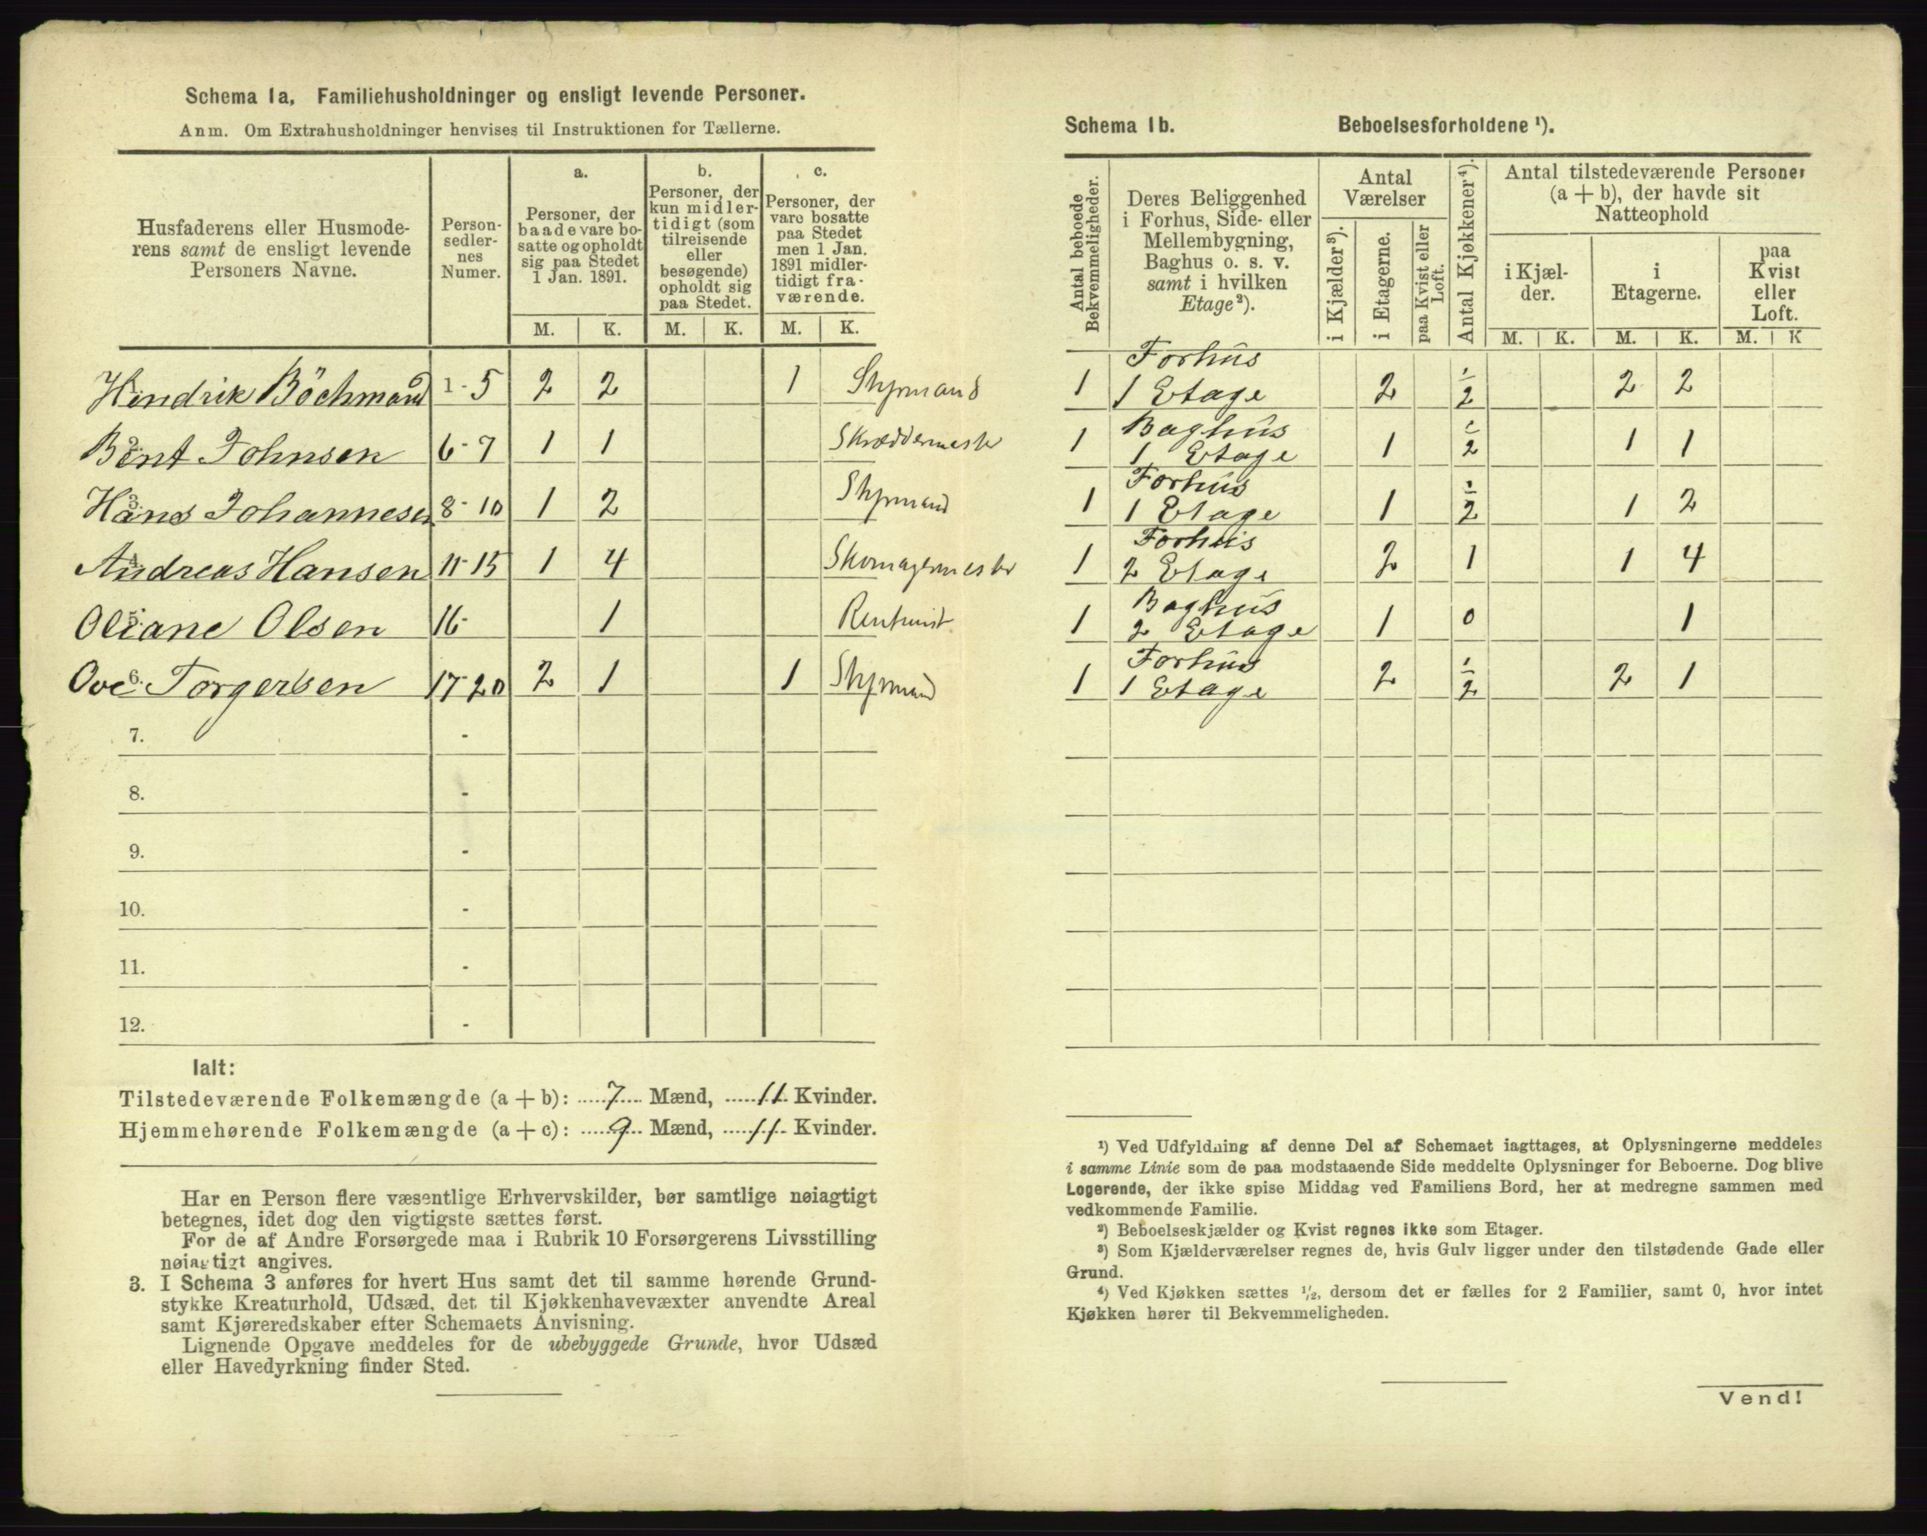 Schema 1a. Familiehusholdninger og ensligt levende Personer.
Anm. Om Extrahusholdninger henvises til Instruktionen for Tællerne.
Husfaderens eller Husmode-
rens samt de ensligt levende
Personers Navne.
Person-
sedler-
nes
Numer.
a.
Personer, der
baade vare bo-
satte og opholdt
sig paa Stedet
1 Jan. 1891.
b.
Personer, der
kun midler-
tidigt (som
tilreisende
eller
besøgende)
opholdt sig
paa Stedet.
c.
Personer, der
vare bosatte
paa Stedet
men 1 Jan.
1891 midler-
tidigt fra-
værende.
M. K. M. K. M. K.
Hendrik Böchmand 1 - 5 2 2 1 Styrmand
2. Bent Johnsen 6 - 7 1 1 Skræddermester
3. Hans Johannesen 8 - 10 1 2 Styrmand
4. Andreas Hansen 11 - 15 1 4 Skomagermester
5. Oliane Olsen 16 - 1
6. Ove Torgersen 17 - 20 2 1 1 Styrmand
7. -
8. -
9. -
10. -
11. -
12. -
Ialt:
Tilstedeværende Folkemængde (a + b): 7 Mænd, 11 Kvinder.
Hjemmehørende Folkemængde (a + c): 9 Mænd, 11 Kvinder.
Har en Person flere væsentlige Erhvervskilder, bør samtlige nøiagtigt
betegnes, idet dog den vigtigste sættes først.
For de af Andre Forsørgede maa i Rubrik 10 Forsørgerens Livsstilling
nøiagtigt angives.
3. I Schema 3 anføres for hvert Hus samt det til samme hørende Grund-
stykke Kreaturhold, Udsæd, det til Kjøkkenhavevæxter anvendte Areal
samt Kjøreredskaber efter Schemaets Anvisning.
Lignende Opgave meddeles for de ubebyggede Grunde, hvor Udsæd
eller Havedyrkning finder Sted.
Schema 1b. Beboelsesforholdene ¹).
Antal beboede
Bekvemmeligheder.
Deres Beliggenhed
i Forhus, Side- eller
Mellembygning,
Baghus o. s. v.
samt i hvilken
Etage²).
Antal
Værelser
i Kjælder³).
i Etagerne.
paa Kvist eller
Loft.
Antal Kjøkkener⁴).
Antal tilstedeværende Personer
(a + b), der havde sit
Natteophold
i Kjæl-
der.
i
Etagerne.
paa
Kvist
eller
Loft.
M. K. M. K. M. K
1 Forhus 1 Etage 2 1/2 2 2
1 Baghus 1 Etage 1 1/2 1 1
1 Forhus 1 Etage 1 1/2 1 2
1 Forhus 2 Etage 2 1 1 4
1 Baghus 2 Etage 1 0 1
1 Forhus 1 Etage 2 1/2 2 1
¹) Ved Udfyldning af denne Del af Schemaet iagttages, at Oplysningerne meddeles
i samme Linie som de paa modstaaende Side meddelte Oplysninger for Beboerne. Dog blive
Logerende, der ikke spise Middag ved Familiens Bord, her at medregne sammen med
vedkommende Familie.
²) Beboelseskjælder og Kvist regnes ikke som Etager.
³) Som Kjælderværelser regnes de, hvis Gulv ligger under den tilstødende Gade eller
Grund.
⁴) Ved Kjøkken sættes ¹/₂, dersom det er fælles for 2 Familier, samt 0, hvor intet
Kjøkken hører til Bekvemmeligheden.
Vend!